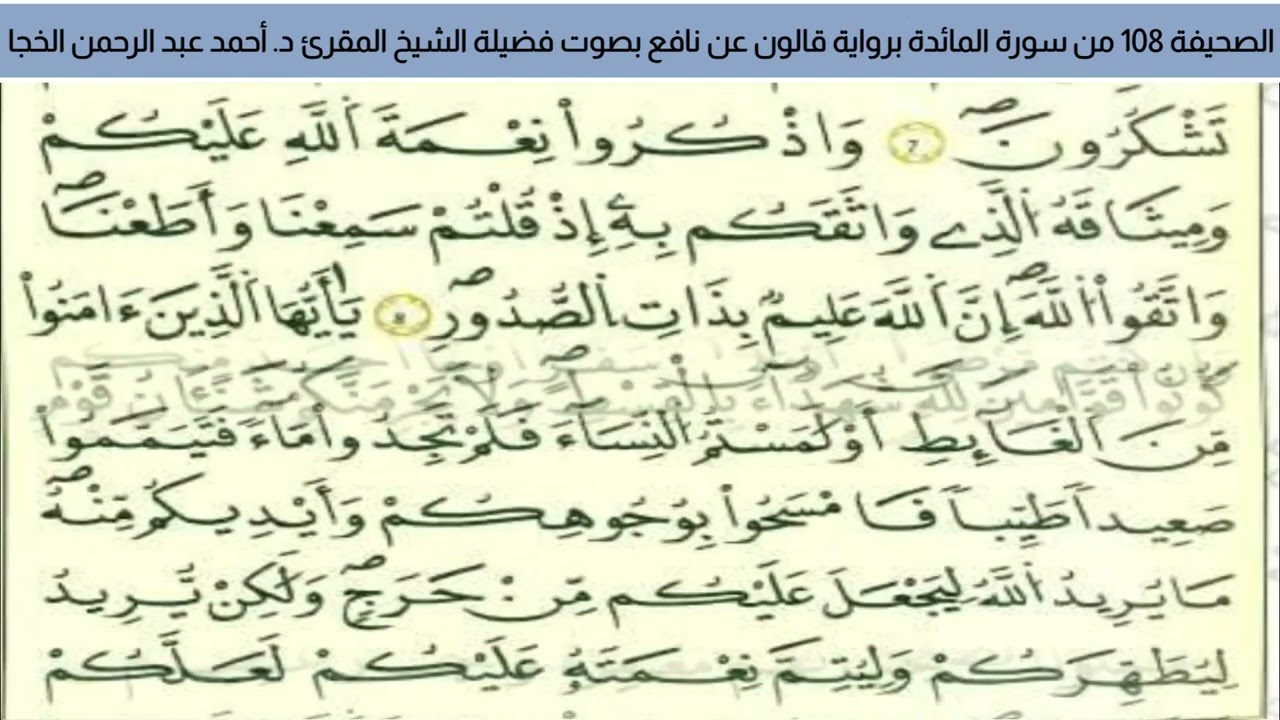 الصحيفة 108 من سورة المائدة برواية قالون عن نافع بصوت فضيلة الشيخ المقرئ د. أحمد عبد الرحمن الخجا
تَشْكُرُونَ 7 وَاذْكُرُواْ نِعْمَةَ اَللَّهِ عَلَيْكُمْ
وَمِيثَاقَهُ اُلَّذِے وَاثَقَكُم بِهِۦٓ إِذْ قُلْتُمْ سَمِعْنَا وَأَطَعْنَا
وَاتَّقُواْ اُللَّهَ إِنَّ اَللَّهَ عَلِيمُۢ بِذَاتِ اِلصُّدُورِ 8 يَٰأَيُّهَا اَلَّذِينَ ءَامَنُواْ
كُونُواْ قَوَّٰمِينَ لِلهِ شُهَدَآءَ بِالْقِسْطِ وَلَا يَجْرِمَنَّكُمْ شَنَـَٔانُ قَوْمٍ
مِّنَ اَلْغَآئِطِ أَوْ لَٰمَسْتُمُ اُلنِّسَآءَ فَلَمْ تَجِدُواْ مَآءً فَتَيَمَّمُواْ
صَعِيداً طَيِّباً فَامْسَحُواْ بِوُجُوهِكُمْ وَأَيْدِيكُم مِّنْهُ
مَا يُرِيدُ اُللَّهُ لِيَجْعَلَ عَلَيْكُم مِّنْ حَرَجٍ وَلَٰكِنْ يُّرِيدُ
لِيُطَهِّرَكُمْ وَلِيُتِمَّ نِعْمَتَهُۥ عَلَيْكُمْ لَعَلَّكُمْ